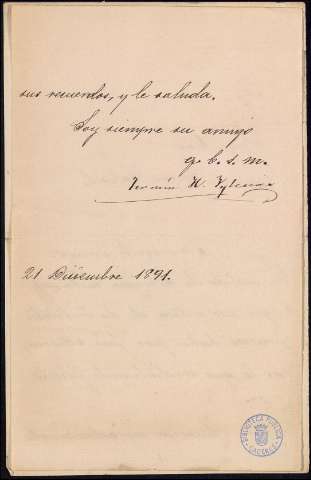 sus recuerdos, y le saluda.
Soy siempre su amigo
q. b. s. m.
Fermín H. Yglesias
21 Diciembre 1891.
BIBLIOTECA PUBLICA
CACERES